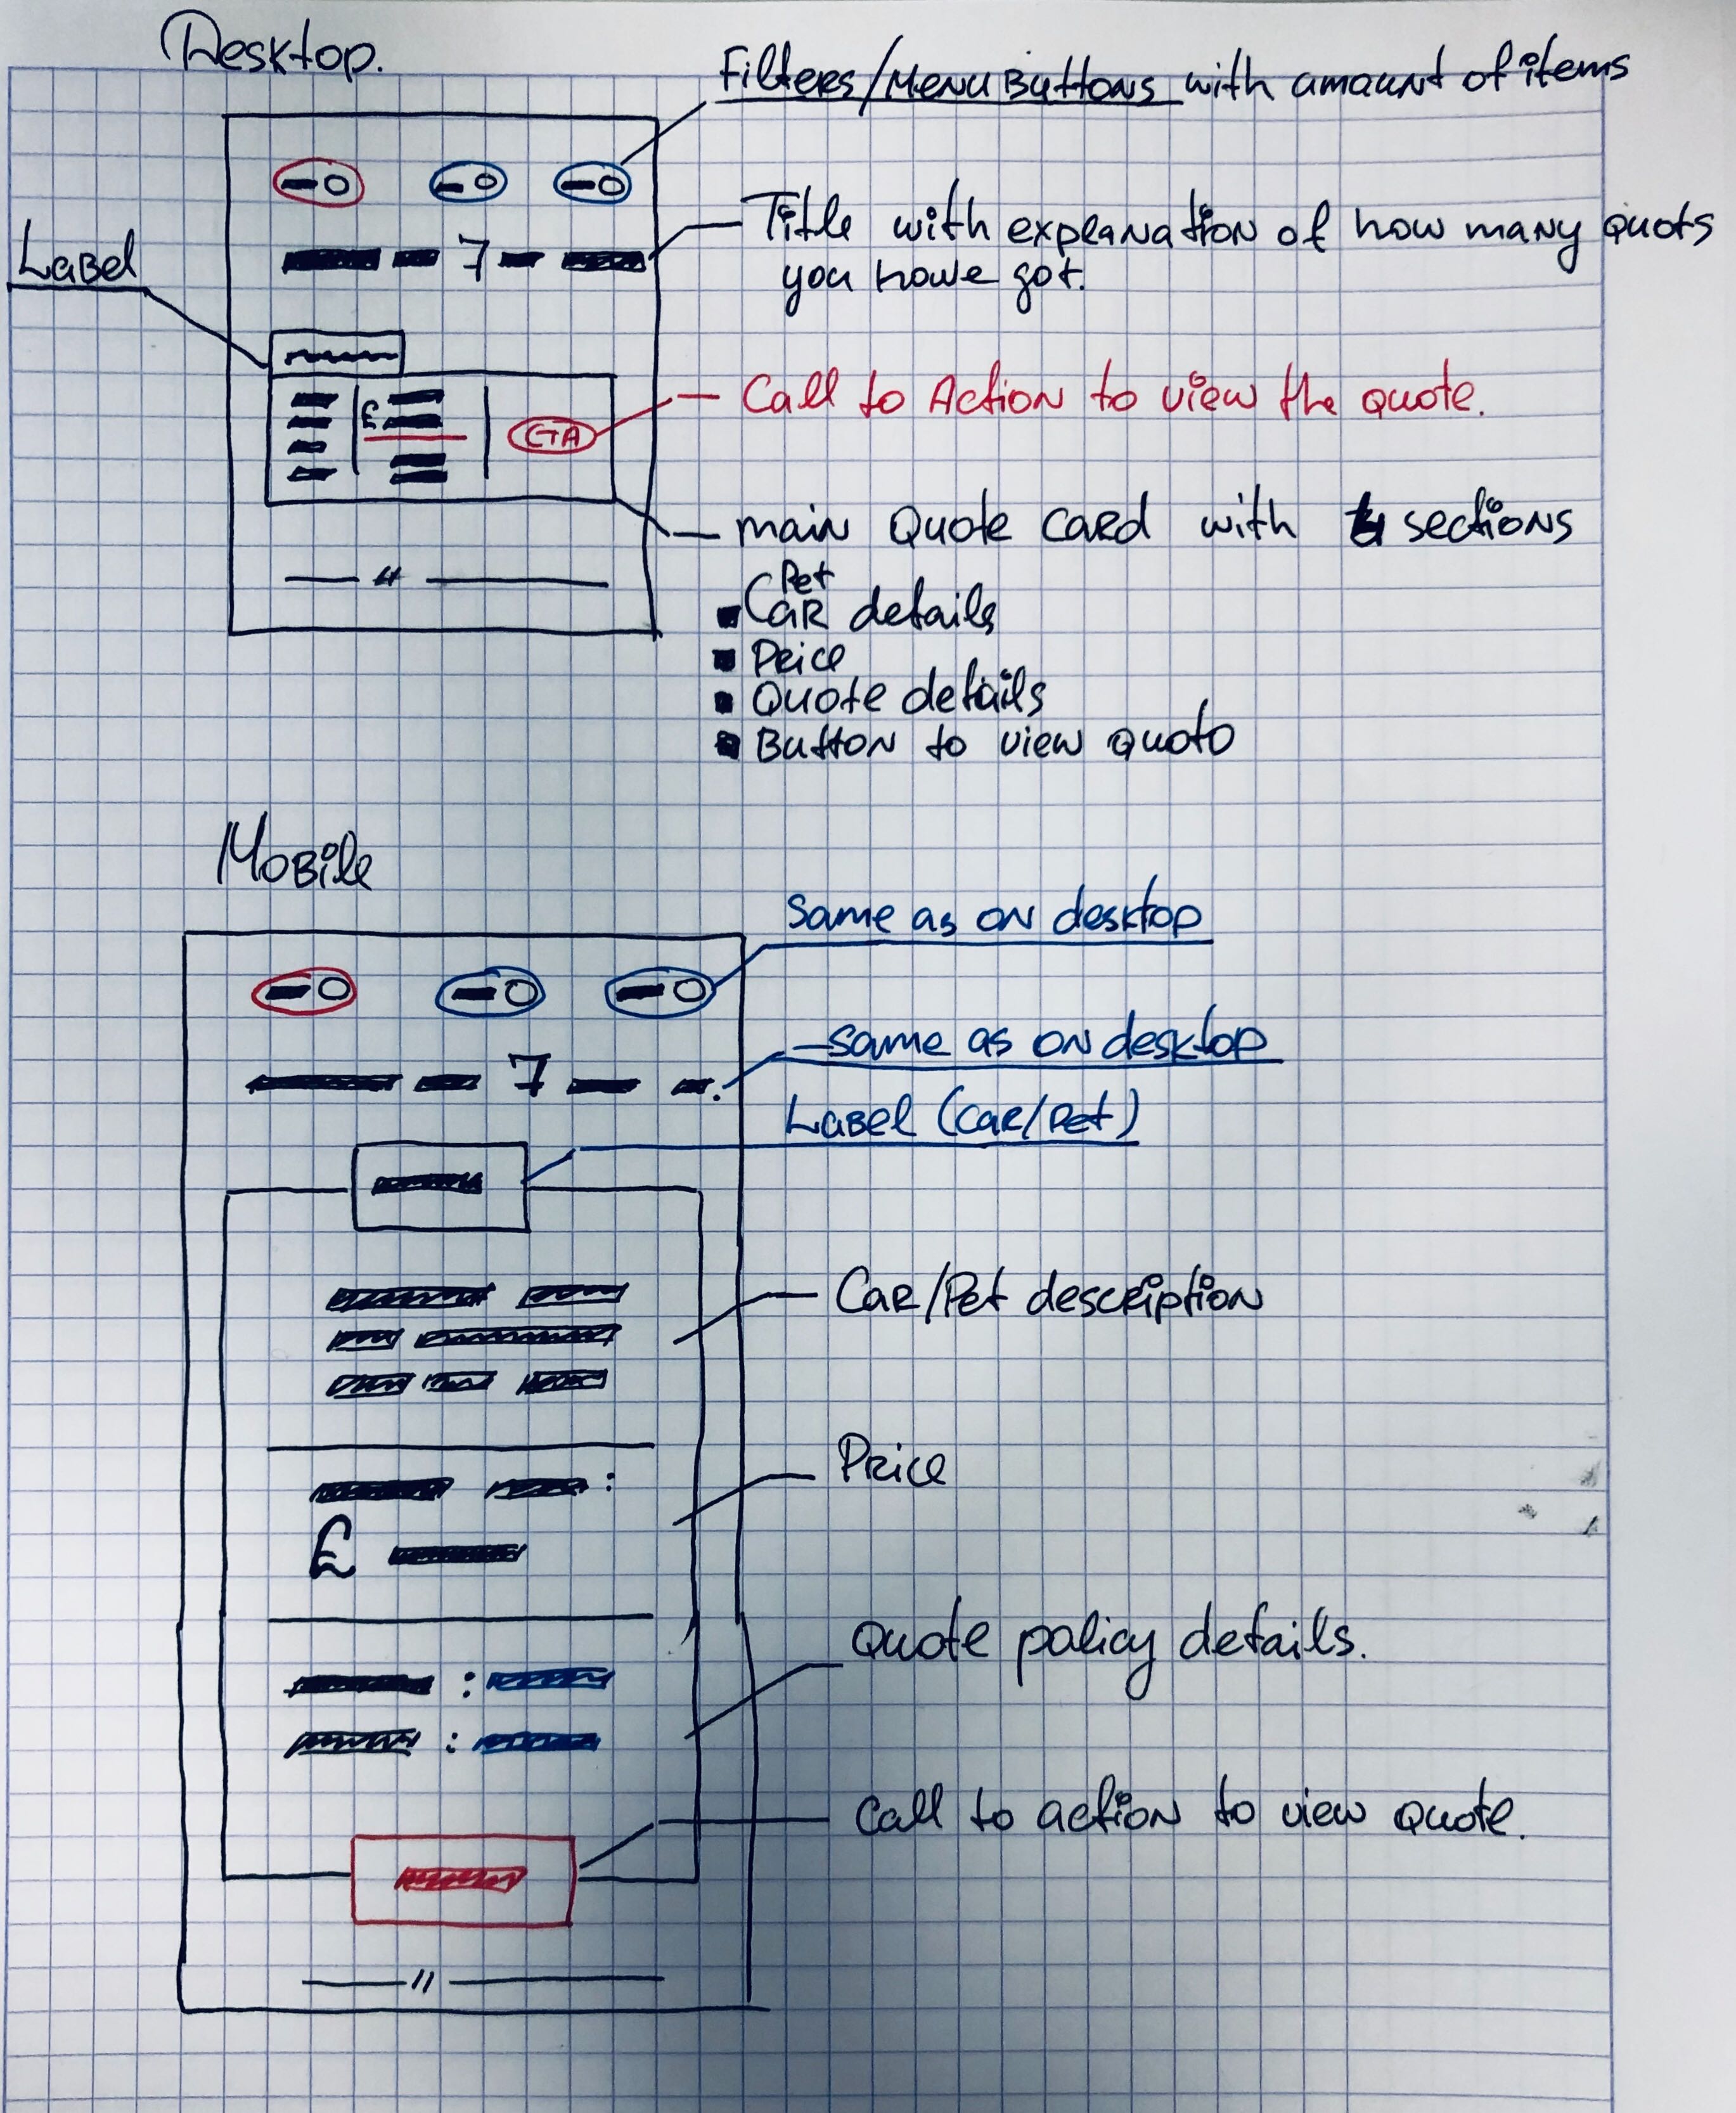 Desktop.
Filters/Menu Buttons with amaunt of items
Title with explanation of how many quots
you howe got.
7
Label
£
CTA
Call to Action to view the quote.
main Quote Card with 4 sections
Pet
Car details
Price
Quote details
Button to view quoto
Mobile
Same as on desktop
7
same as on desktop
Label (Car/Pet)
Car/Pet description
Price
£
Quote policy details.
Call to action to view quote.